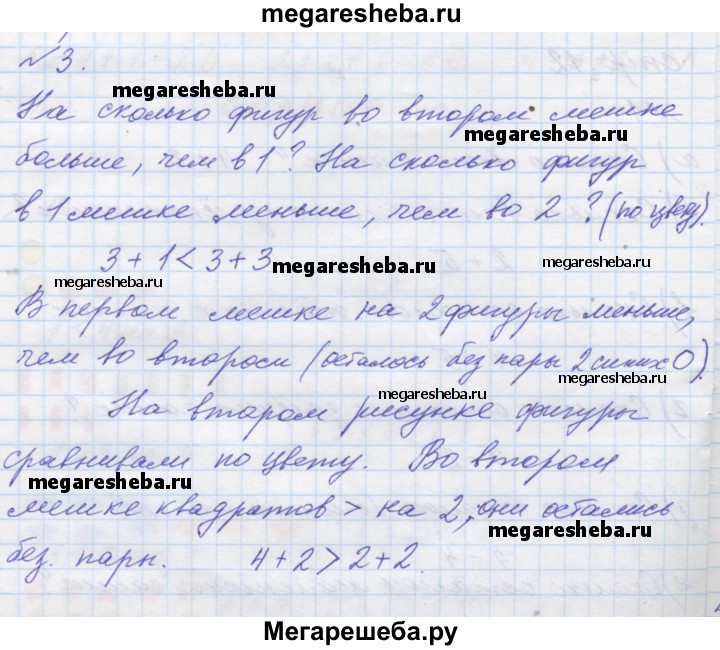 megaresheba.ru
№3.
megaresheba.ru
На сколько фигур во втором мешке
megaresheba.ru
больше, чем в 1? На сколько фигур
в 1 мешке меньше, чем во 2? (по цвету).
3+1<3+3
megaresheba.ru
megaresheba.ru
В первом мешке на 2 фигуры меньше,
чем во втором (осталось без пары 2 синих О).
megaresheba.ru
На втором рисунке фигуры
сравнивали по цвету. Во втором
megaresheba.ru
мешке квадратов > на 2, они остались
megaresheba.ru
без. пары. 4+2>2+2.
Мегарешеба.ру